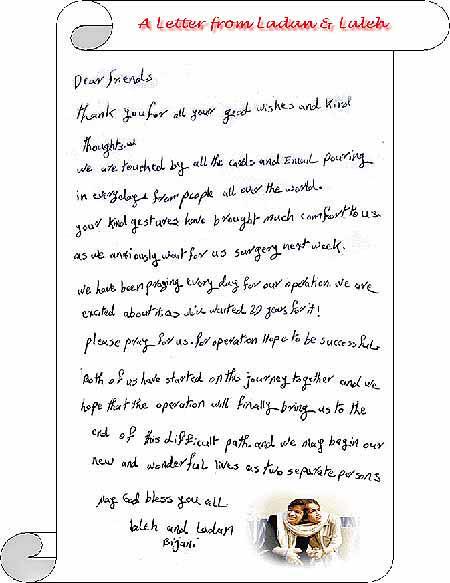 A Letter from Ladan & Laleh
Dear friends
Thank you for all your good wishes and kind
thoughts.
we are touched by all the cards and Email pouring
in everyday from people all over the world.
your kind gestures have brought much comfort to us.
as we anxiously wait for us surgery next week.
we have been praying every day for our operation we are
excited about it, as we've waited 29 years for it!
please pray for us. for operation Hope to be successful.
Both of us have started on this journey together and we
hope that the operation will finally bring us to the
end of this difficult path. and we may begin our
new and wonderful lives as two separate persons
May God bless you all
laleh and Ladan
Bijani